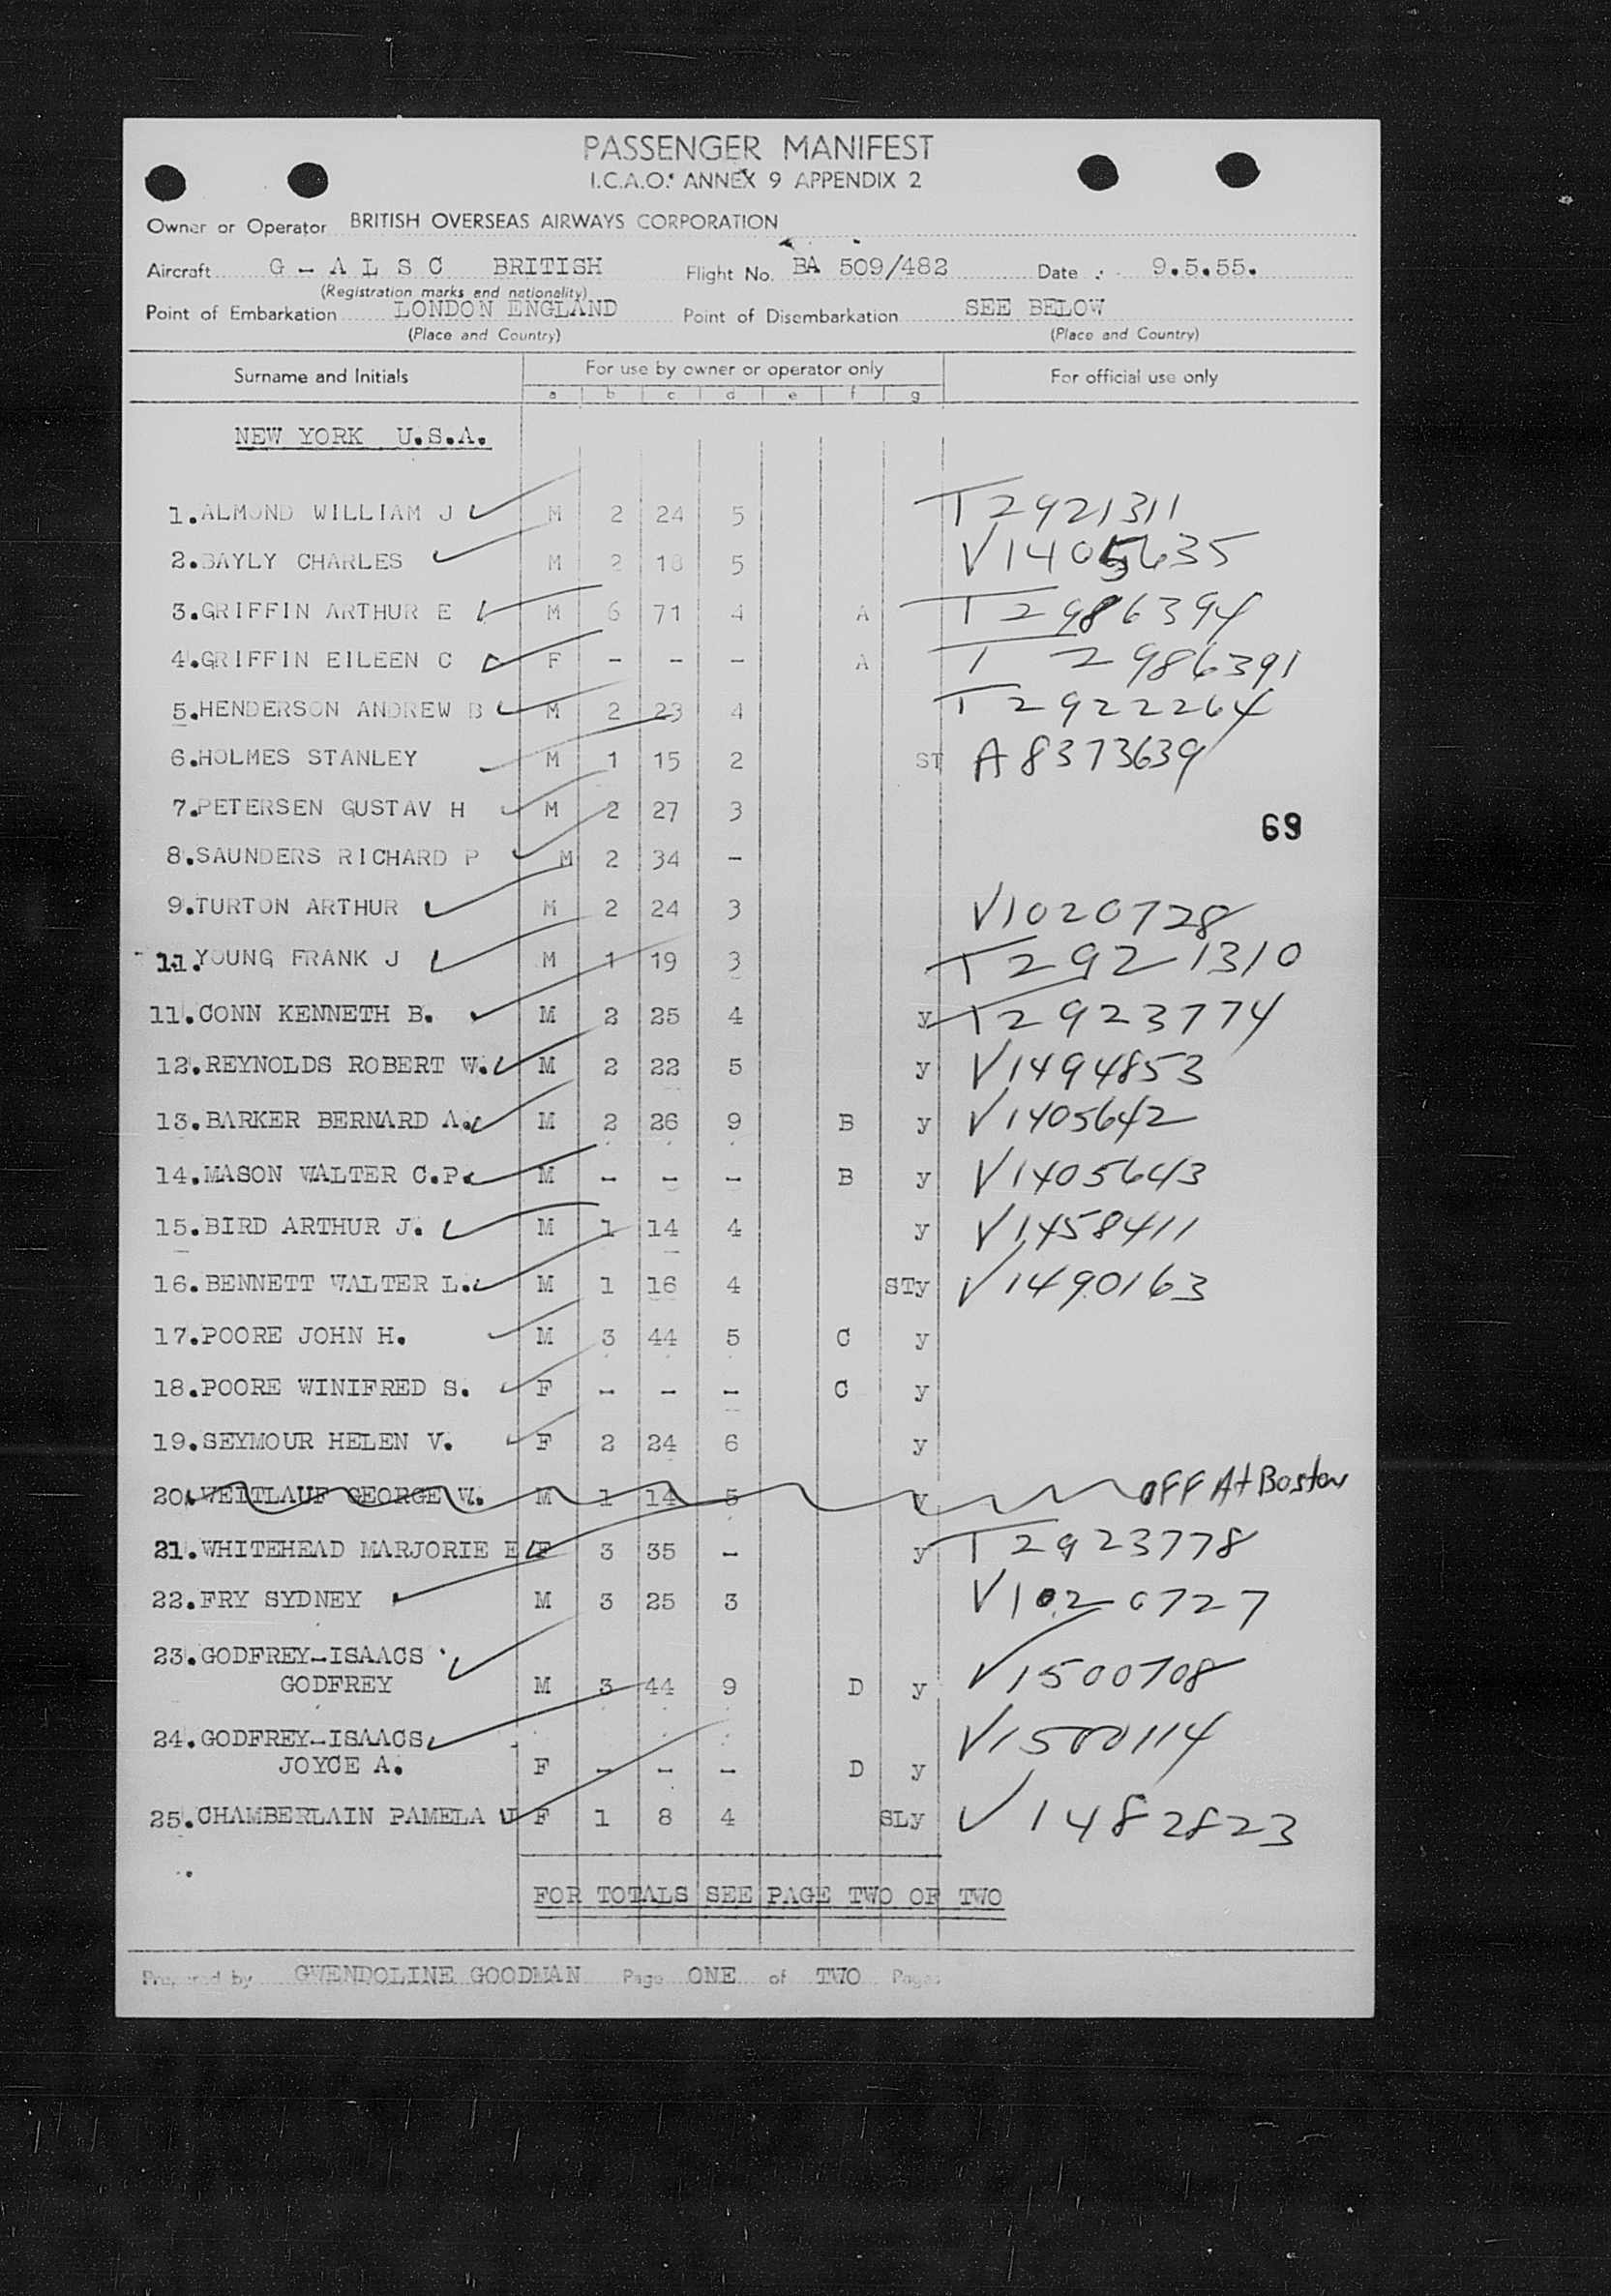 PASSENGER MANIFEST
I.C.A.O. ANNEX 9 APPENDIX 2
Owner or Operator BRITISH OVERSEAS AIRWAYS CORPORATION
Aircraft G - A L S C BRITISH Flight No. BA 509/482 Date 9.5.55.
(Registration marks and nationality)
Point of Embarkation LONDON ENGLAND Point of Disembarkation SEE BELOW
(Place and Country) (Place and Country)
Surname and Initials For use by owner or operator only For official use only
a b c d e f g
NEW YORK U.S.A.
1. ALMOND WILLIAM J M 2 24 5 T2921311
2. BAYLY CHARLES M 2 18 5 V1405635
3. GRIFFIN ARTHUR E M 6 71 4 A T2986394
4. GRIFFIN EILEEN C F - - - A T2986391
5. HENDERSON ANDREW B M 2 23 4 T2922264
6. HOLMES STANLEY M 1 15 2 ST A8373639
7. PETERSEN GUSTAV H M 2 27 3
69
8. SAUNDERS RICHARD P M 2 34 -
9. TURTON ARTHUR M 2 24 3 V1020728
11. YOUNG FRANK J M 1 19 3 T2921310
11. CONN KENNETH B. M 2 25 4 y T2923774
12. REYNOLDS ROBERT W. M 2 22 5 y V1494853
13. BARKER BERNARD A. M 2 26 9 B y V1405642
14. MASON WALTER C.P. M - - - B y V1405643
15. BIRD ARTHUR J. M 1 14 4 y V1458411
16. BENNETT WALTER L. M 1 16 4 STy V1490163
17. POORE JOHN H. M 3 44 5 C y
18. POORE WINIFRED S. F - - - C y
19. SEYMOUR HELEN V. F 2 24 6 y
20. WEITLAUF GEORGE W. M 1 14 5 y OFF At Boston
21. WHITEHEAD MARJORIE E F 3 35 - y T2923778
22. FRY SYDNEY M 3 25 3 V1020727
23. GODFREY-ISAACS
GODFREY M 3 44 9 D y V1500708
24. GODFREY-ISAACS
JOYCE A. F - - - D y V1500114
25. CHAMBERLAIN PAMELA U F 1 8 4 SLy V1482823
FOR TOTALS SEE PAGE TWO OF TWO
Prepared by GWENDOLINE GOODMAN Page ONE of TWO Pages